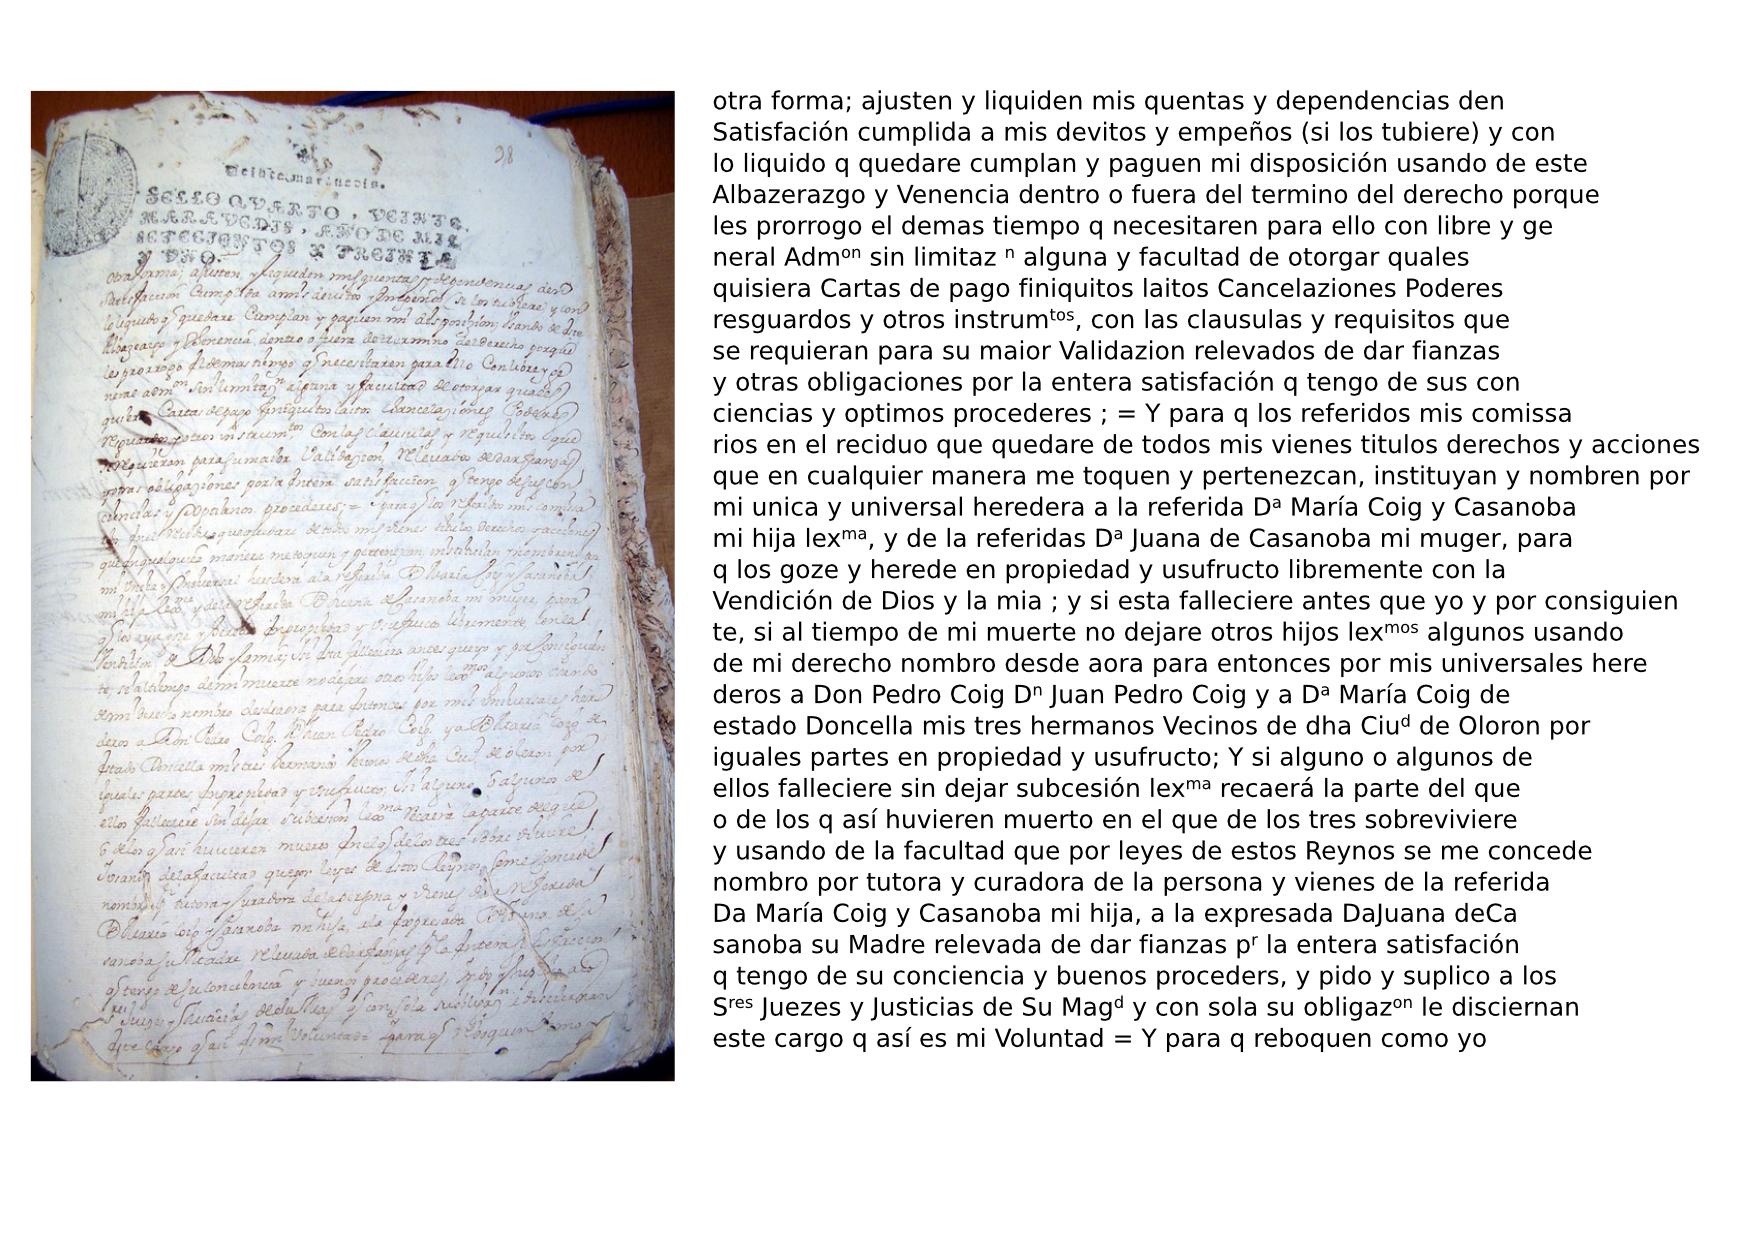 98
Veinte maravedis.
SELLO QVARTO, VEINTE
MARAVEDIS, AÑO DE MIL
SETECIENTOS Y TREINTA
Y VNO.
otra forma; ajusten y liquiden mis quentas y dependencias den
Satisfación cumplida a mis devitos y empeños (si los tubiere) y con
lo liquido q quedare cumplan y paguen mi disposición usando de este
Albazerazgo y Venencia dentro o fuera del termino del derecho porque
les prorrogo el demas tiempo q necesitaren para ello con libre y ge
neral Admᵒⁿ sin limitaz ⁿ alguna y facultad de otorgar quales
quisiera Cartas de pago finiquitos laitos Cancelaziones Poderes
resguardos y otros instrumᵗᵒˢ, con las clausulas y requisitos que
se requieran para su maior Validazion relevados de dar fianzas
y otras obligaciones por la entera satisfación q tengo de sus con
ciencias y optimos procederes ; = Y para q los referidos mis comissa
rios en el reciduo que quedare de todos mis vienes titulos derechos y acciones
que en cualquier manera me toquen y pertenezcan, instituyan y nombren por
mi unica y universal heredera a la referida Dᵃ María Coig y Casanoba
mi hija lexᵐᵃ, y de la referidas Dᵃ Juana de Casanoba mi muger, para
q los goze y herede en propiedad y usufructo libremente con la
Vendición de Dios y la mia ; y si esta falleciere antes que yo y por consiguien
te, si al tiempo de mi muerte no dejare otros hijos lexᵐᵒˢ algunos usando
de mi derecho nombro desde aora para entonces por mis universales here
deros a Don Pedro Coig Dⁿ Juan Pedro Coig y a Dᵃ María Coig de
estado Doncella mis tres hermanos Vecinos de dha Ciuᵈ de Oloron por
iguales partes en propiedad y usufructo; Y si alguno o algunos de
ellos falleciere sin dejar subcesión lexᵐᵃ recaerá la parte del que
o de los q así huvieren muerto en el que de los tres sobreviviere
y usando de la facultad que por leyes de estos Reynos se me concede
nombro por tutora y curadora de la persona y vienes de la referida
Da María Coig y Casanoba mi hija, a la expresada DaJuana deCa
sanoba su Madre relevada de dar fianzas pʳ la entera satisfación
q tengo de su conciencia y buenos proceders, y pido y suplico a los
Sʳᵉˢ Juezes y Justicias de Su Magᵈ y con sola su obligazᵒⁿ le disciernan
este cargo q así es mi Voluntad = Y para q reboquen como yo